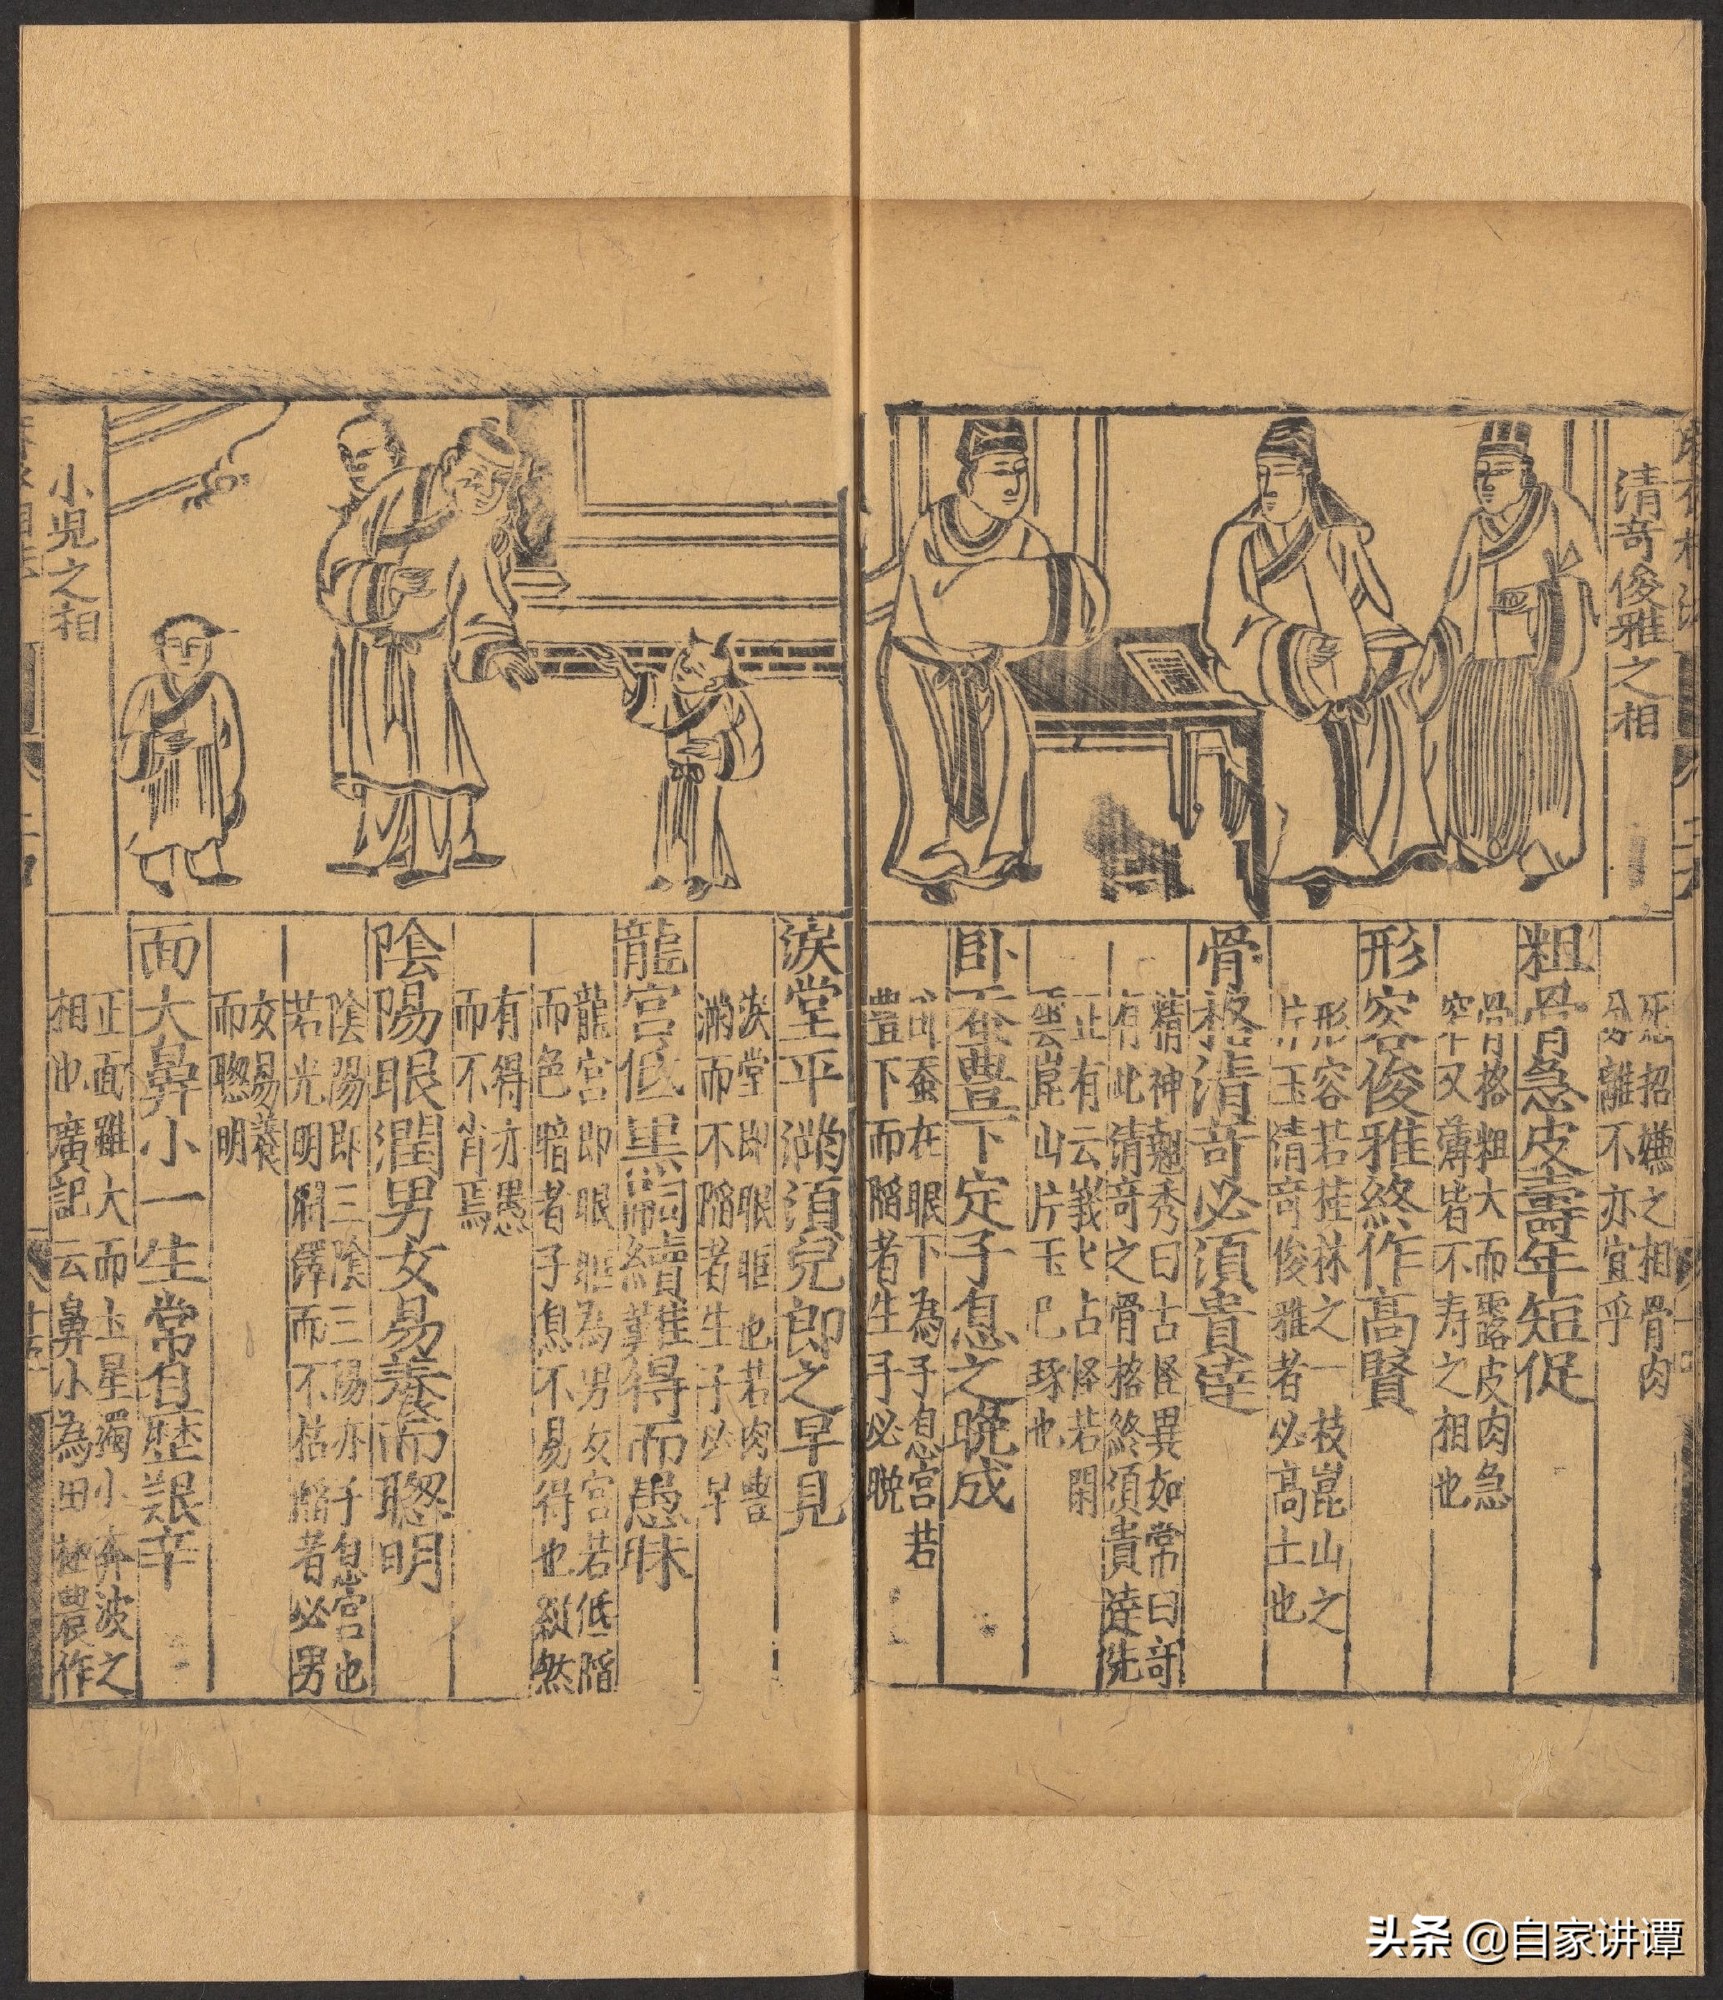 清奇俊雅之相
死慾招嫌之相骨肉
分離不亦宜乎
粗骨急皮壽年短促
骨格粗大而露皮肉急
窄又薄皆不寿之相也
形容俊雅終作高賢
形容若桂林之一枝崑山之
片玉清奇俊雅者必高士也
骨格清奇必須貴達
精神翹秀曰古怪異如常曰奇
有此清奇之骨格終須貴達先
正有云峩占怪若閑
雲崑山片玉已琢也
臥蚕豊下定子息之晚成
卧蚕在眼下為子息宮若
豊下而陷者生子必晚
小兒之相
淚堂平滿須兒郎之早見
淚堂即眼眶也若肉豊
滿而不陷者生子必早
龍宮低黑嗣續難得而愚昧
龍宮即眼眶為男女宮若低陷
而色暗者子息不易得也縱然
有得亦愚
而不肖焉
陰陽眼潤男女易養而聰明
陰陽即三陰三陽亦子息宮也
若光明潤澤而不枯陷者必男
女易養
而聰明
面大鼻小一生常自歷艱辛
正面雖大而土星獨小奔波之
相也廣記云鼻小為田農作
头条 @自家讲谭